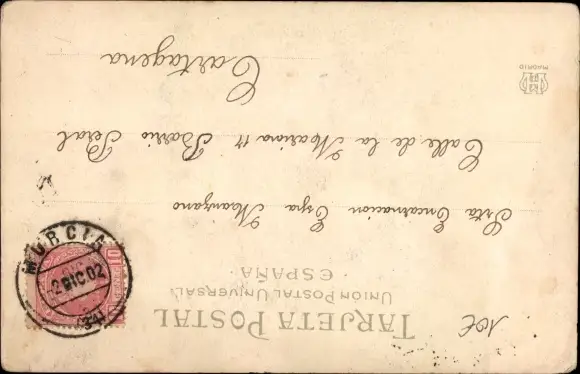 TARJETA POSTAL
UNIÓN POSTAL UNIVERSAL
· ESPAÑA ·
Srta Encarnacion Espa Manzano
Calle de la Marina 17 Barrio Peral
Cartagena
MURCIA
DIC 02
10
10€
MADRID